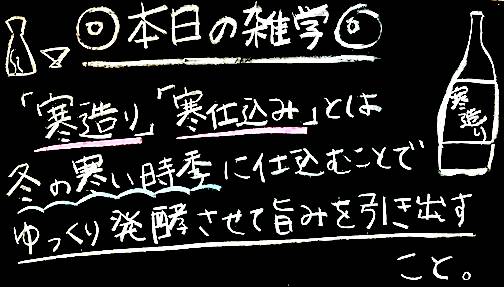 ◎本日の雑学◎
「寒造り」「寒仕込み」とは
冬の寒い時季に仕込むことで
ゆっくり発酵させて旨みを引き出す
こと。
寒造り